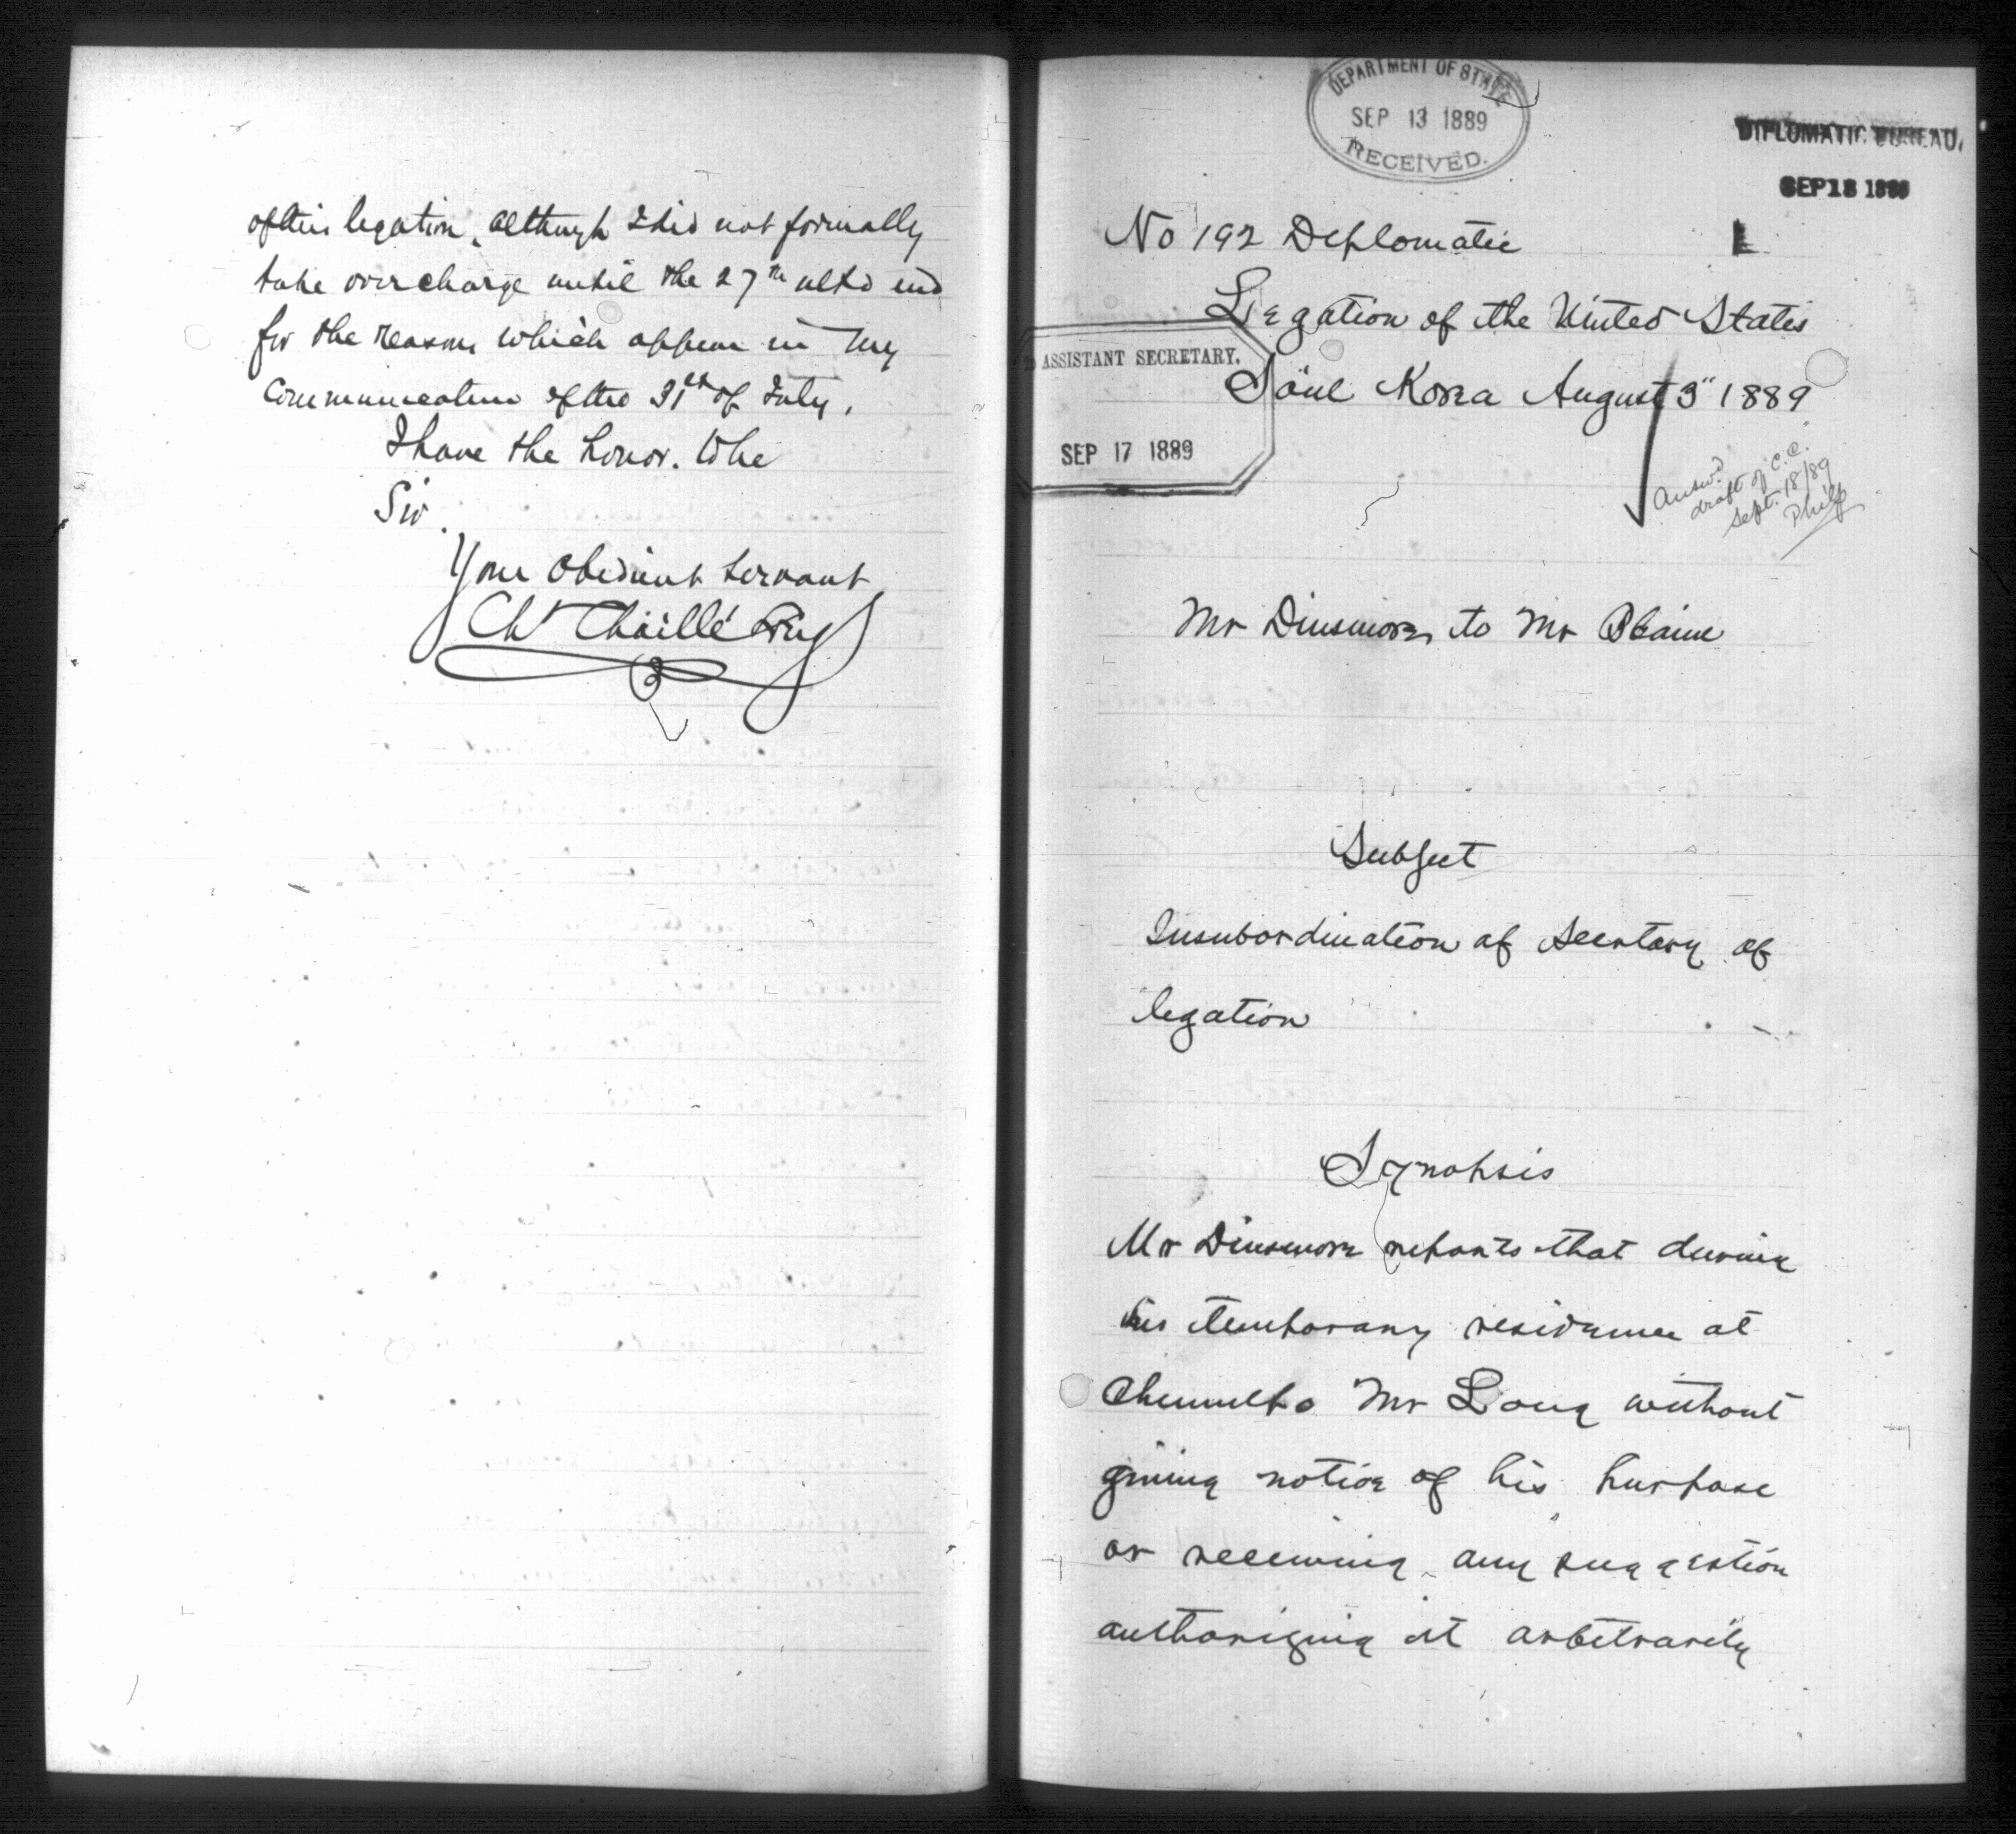 of this legation, although I did not formally
take over charge until the 27th ulto and
for the reasons which appear in my
communication of the 31st of July.
I have the honor to be
Sir.
Your Obedient Servant
Ch Chaillé Long
DEPARTMENT OF STATE
SEP 13 1889
RECEIVED.
DIPLOMATIC BUREAU.
SEP 13 1889
No 192 Diplomatic
Legation of the United States
ASSISTANT SECRETARY.
SEP 17 1889
Söul Korea August 3" 1889
Answ'd
draft of C.C.
Sept. 18/89
Philp
Mr Dinsmore to Mr Blaine
Subject
Insubordination of Secretary of
legation
Synopsis
Mr Dinsmore reports that during
his temporary residence at
Chemulpo Mr Long without
giving notice of his purpose
or receiving any suggestion
authorizing it arbitrarily